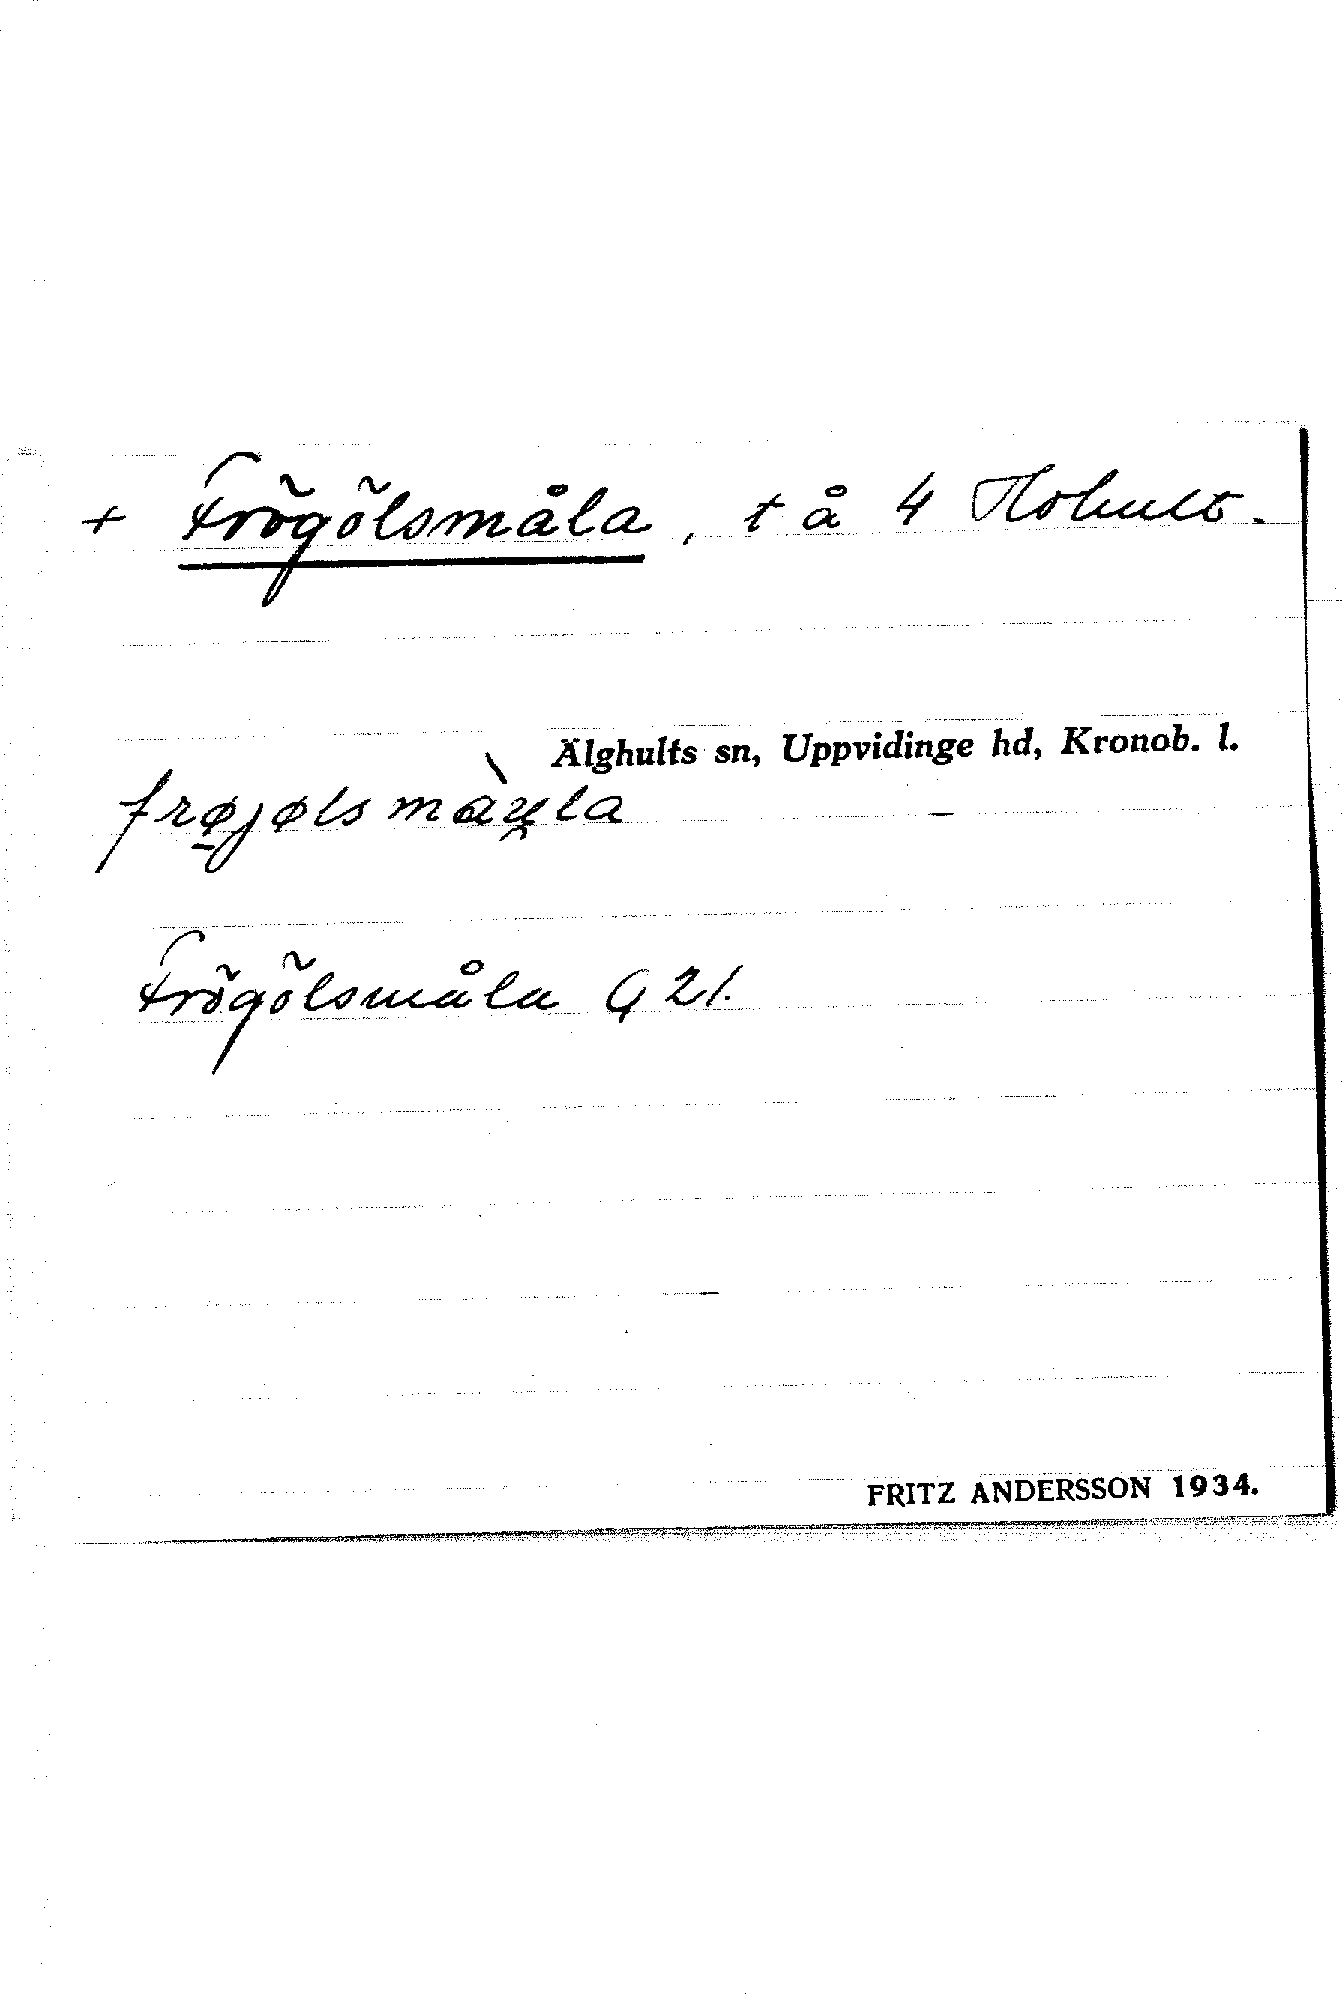 + Frögölsmåla, t å 4 Hohult.
Älghults sn, Uppvidinge hd, Kronob. l.
frøjølsmàu̯la
Frögölsmåla G 21.
FRITZ ANDERSSON 1934.